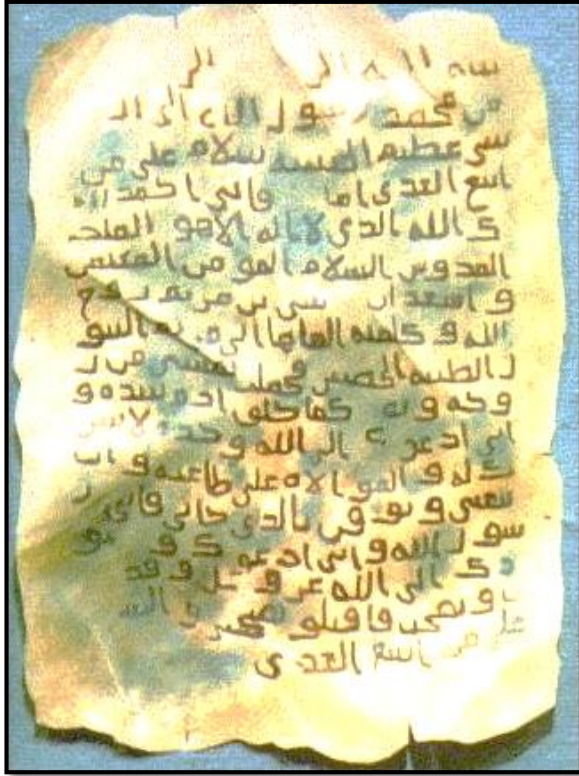 بسم الله الر الر
من محمد رسول الله الى ال
شى عظيم الحبشة سلام على من
اتبع الهدى اما فانى احمد الي
ك الله الذى لا اله الا هو الملك
القدوس السلام المومن المهيمن
و اشهد ان سى بن مريم روح
الله و كلمته القاها الى مريم البتو
ل الطيبة الحصينة فحملت بعيسى من ر
وحه و كما خلق ادم بيده و
انى ادعوك الى الله وحده لا شر
يك له و الموالاه على طاعته و ان
تتبعنى و توقن بالذى جانى فانى ر
سول الله و انى ادعوك و جنو
دك الى الله عز و جل و قد
و نصحت فاقبلوا
على من اتبع الهدى